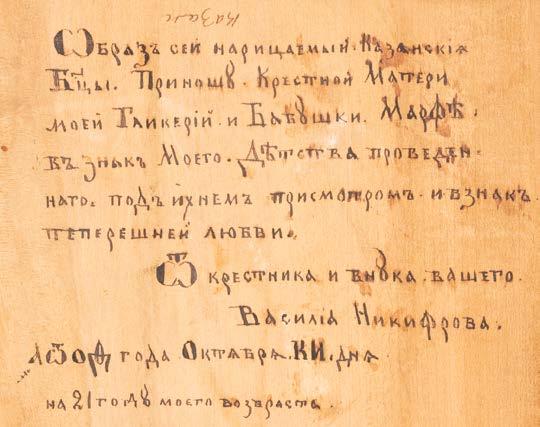 казанс
Ѡбразъ сей нарицаемый Казанскія
Бцы. Приношу. Крестной Матери
моей Гликерій. и Бабушки. Марфѣ.
въ знакъ Моего. Дѣтства проведен-
наго. подъ ихнемъ присмотромъ. и взнакъ
теперешней любви.
Ѿ крестника и внука. вашего.
Василія Никифрова.
года Октября. КИ. дня
на 21 году моего возвраста.